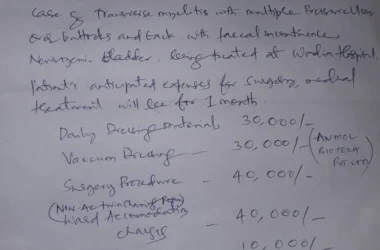 Case of Transverse myelitis with multiple Pressure Ulcers
over buttocks and back, with faecal incontinence,
Neurogenic bladder, being treated at Wadia Hospital.
Patient's anticipated expenses for surgery, medical
treatment will be for 1 month.
Daily Dressing Material, 30,000/-
Vaccum Dressing — 30,000/- (ANMOL BIOTECH PVT. LTD)
Surgery Procedure — 40,000/-
Accommodation — 40,000/-
charges
10,000/-